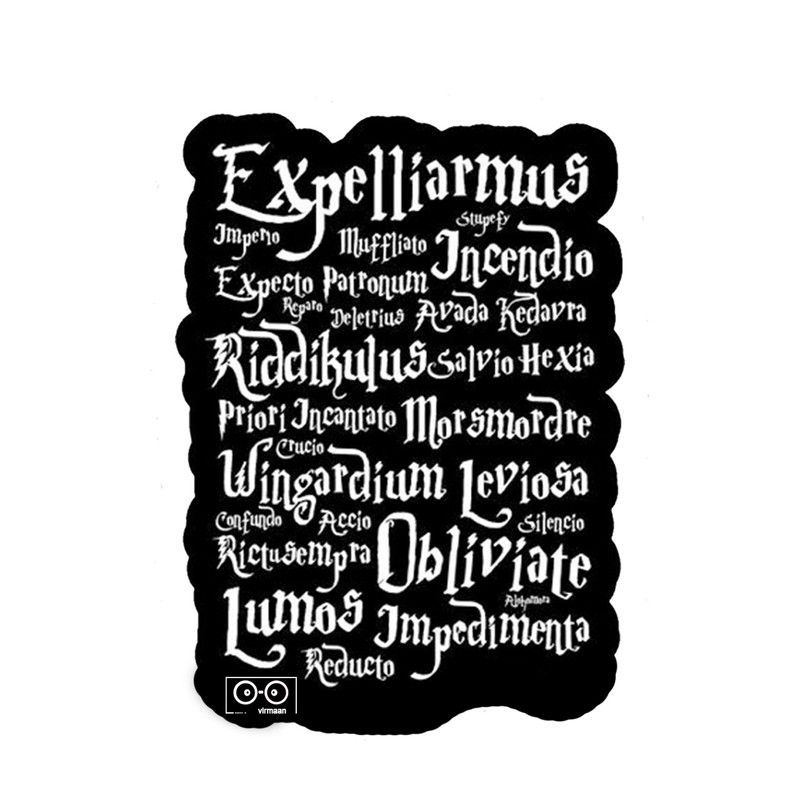 Expelliarmus
Stupefy
Imperio Muffliato Incendio
Expecto Patronum
Reparo Deletrius Avada Kedavra
Riddikulus Salvio Hexia
Priori Incantato Morsmordre
Crucio
Wingardium Leviosa
Confundo Accio Silencio
Rictusempra Obliviate
Alohomora
Lumos Impedimenta
Reducto
virmaan